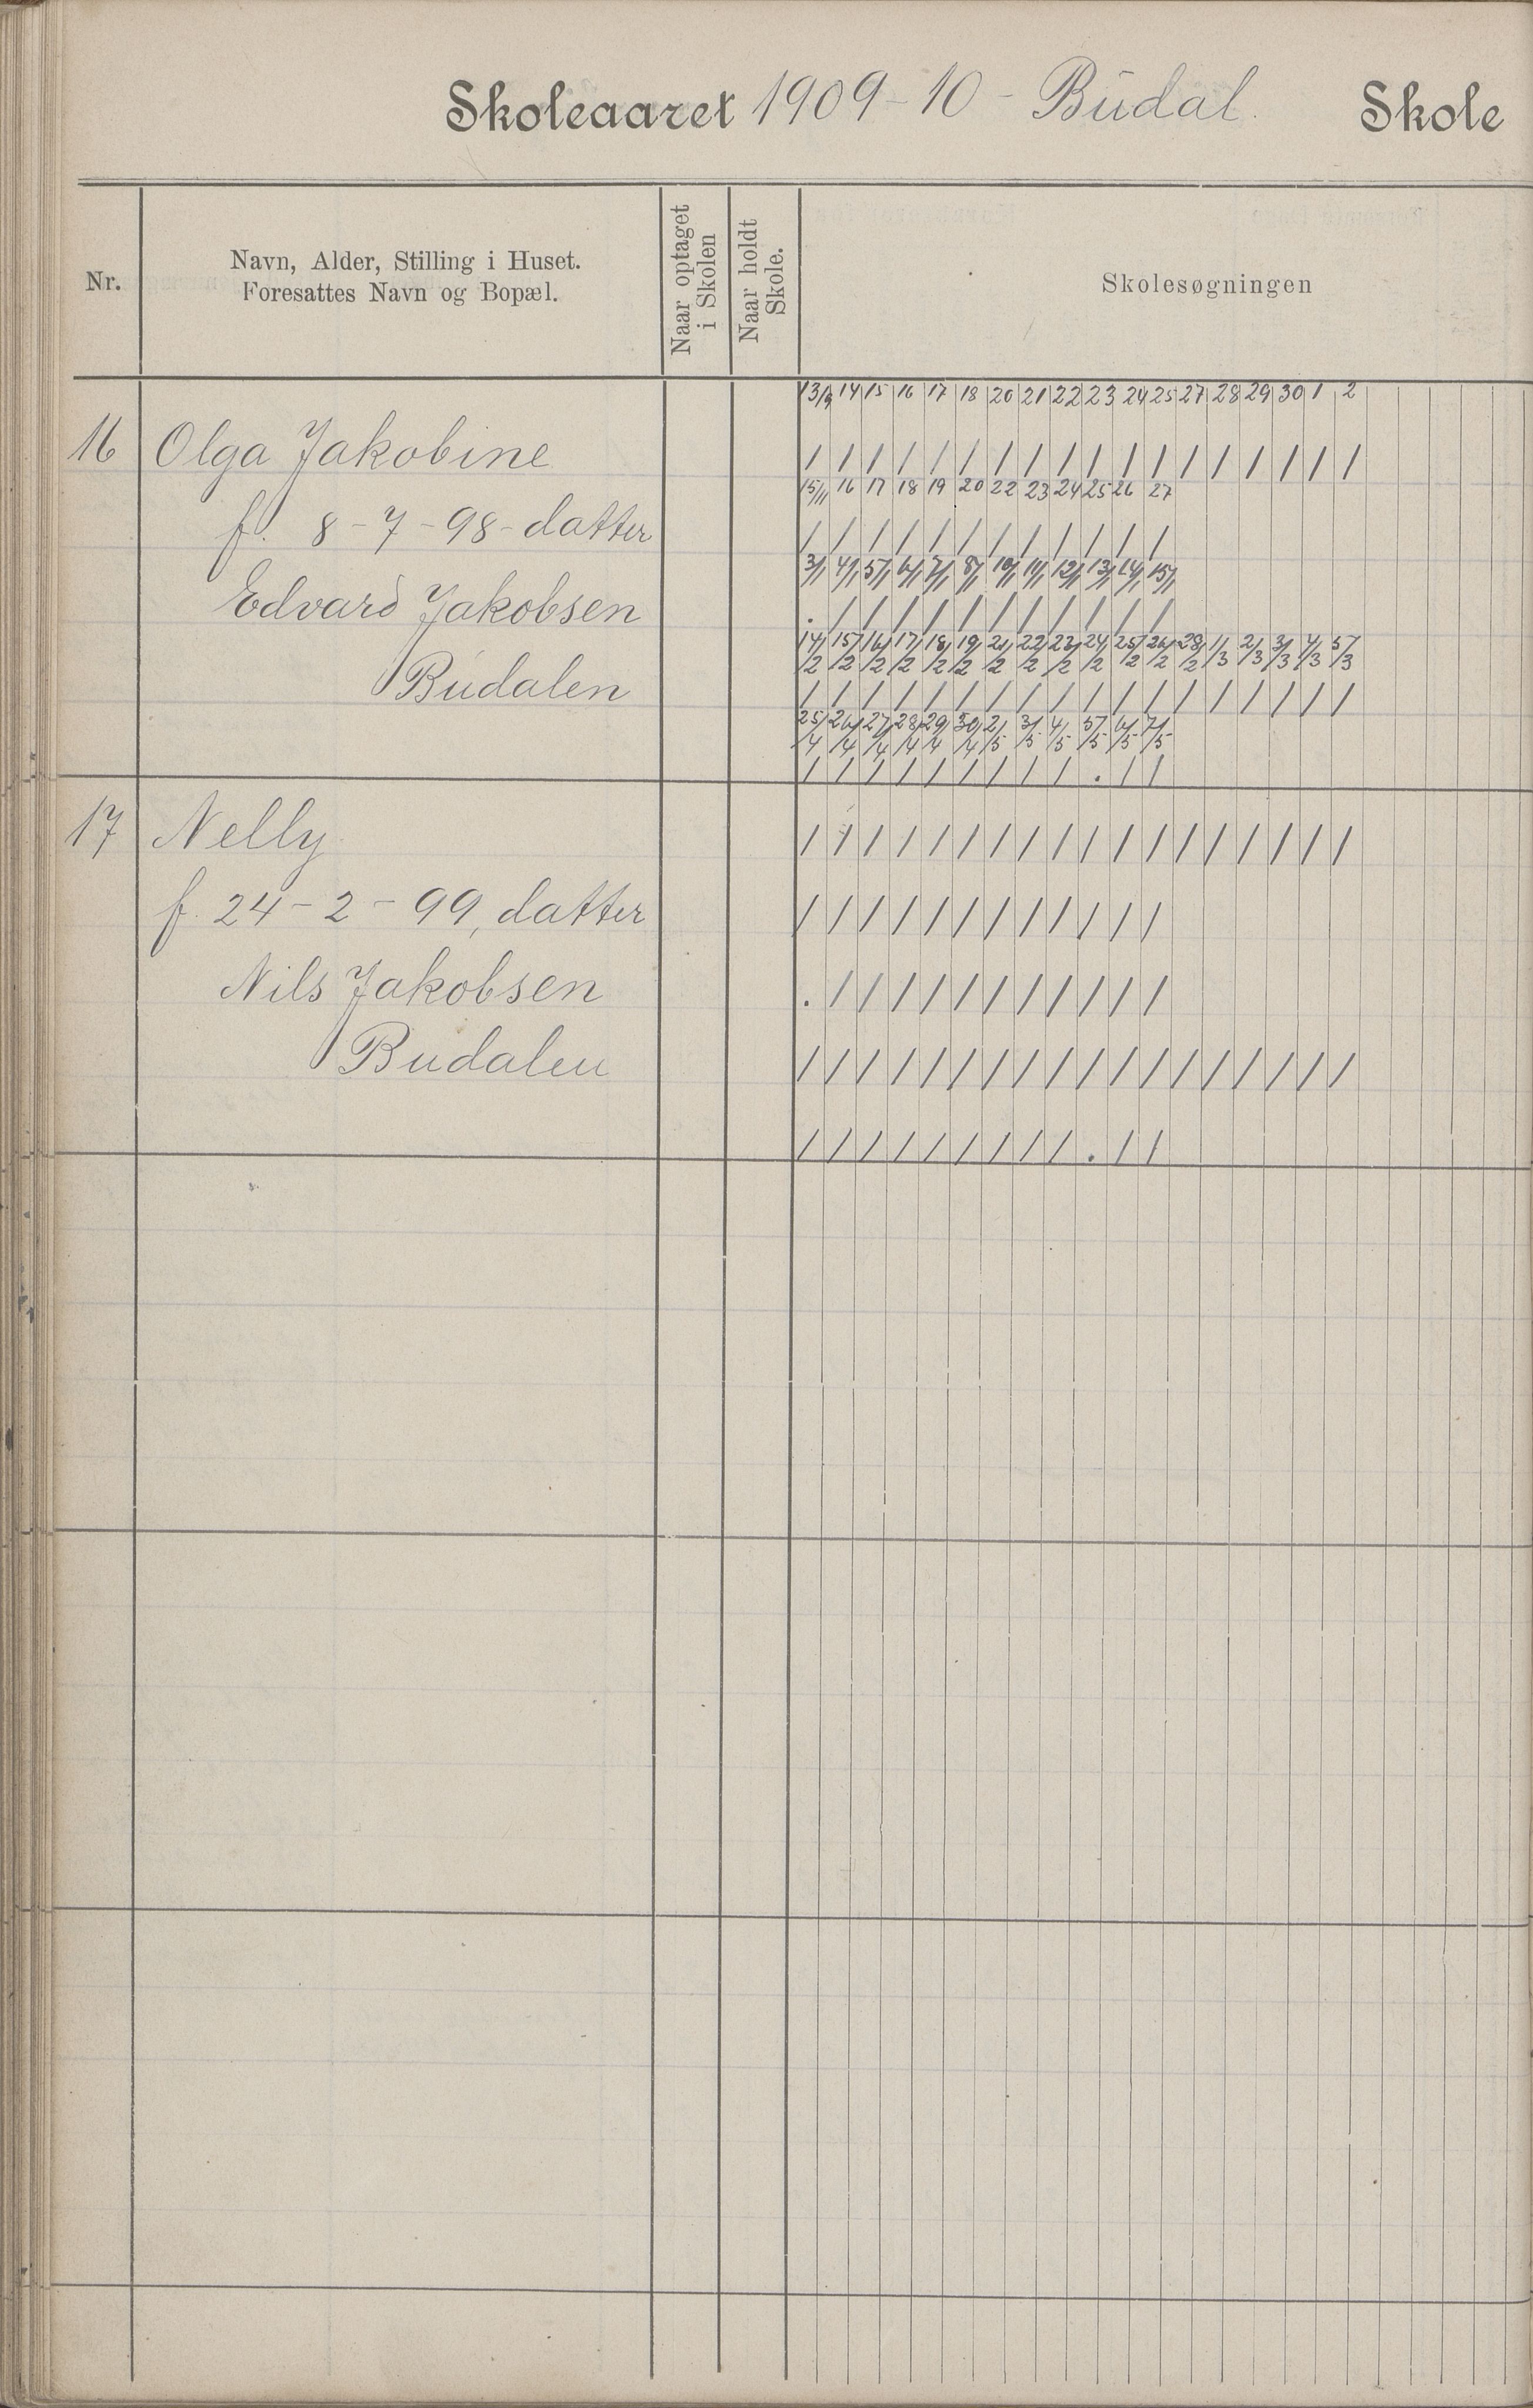 Skoleaaret 1909-10 - Budal. Skole
Nr.
Navn, Alder, Stilling i Huset.
Foresattes Navn og Bopæl.
Naar optaget
i Skolen
Naar holdt
Skole.
Skolesøgningen
13/9 14 15 16 17 18 20 21 22 23 24 25 27 28 29 30 1 2
16 Olga Jakobine / / / / / / / / / / / / / / / / / /
15/11 16 17 18 19 20 22 23 24 25 26 27
f. 8-7-98- datter / / / / / / / / / / / /
3/1 4/1 5/1 6/1 7/1 8/1 10/1 11/1 12/1 13/1 14/1 15/1
Edvard Jakobsen . / / / / / / / / / / /
14/2 15/2 16/2 17/2 18/2 19/2 21/2 22/2 23/2 24/2 25/2 26/2 28/2 1/3 2/3 3/3 4/3 5/3
Budalen / / / / / / / / / / / / / / / / / /
25/4 26/4 27/4 28/4 29/4 30/4 2/5 3/5 4/5 5/5 6/5 7/5
/ / / / / / / / / . / /
17 Nelly / / / / / / / / / / / / / / / / / /
f. 24-2-99, datter / / / / / / / / / / / /
Nils Jakobsen . / / / / / / / / / / /
Budalen / / / / / / / / / / / / / / / / / /
/ / / / / / / / / . / /